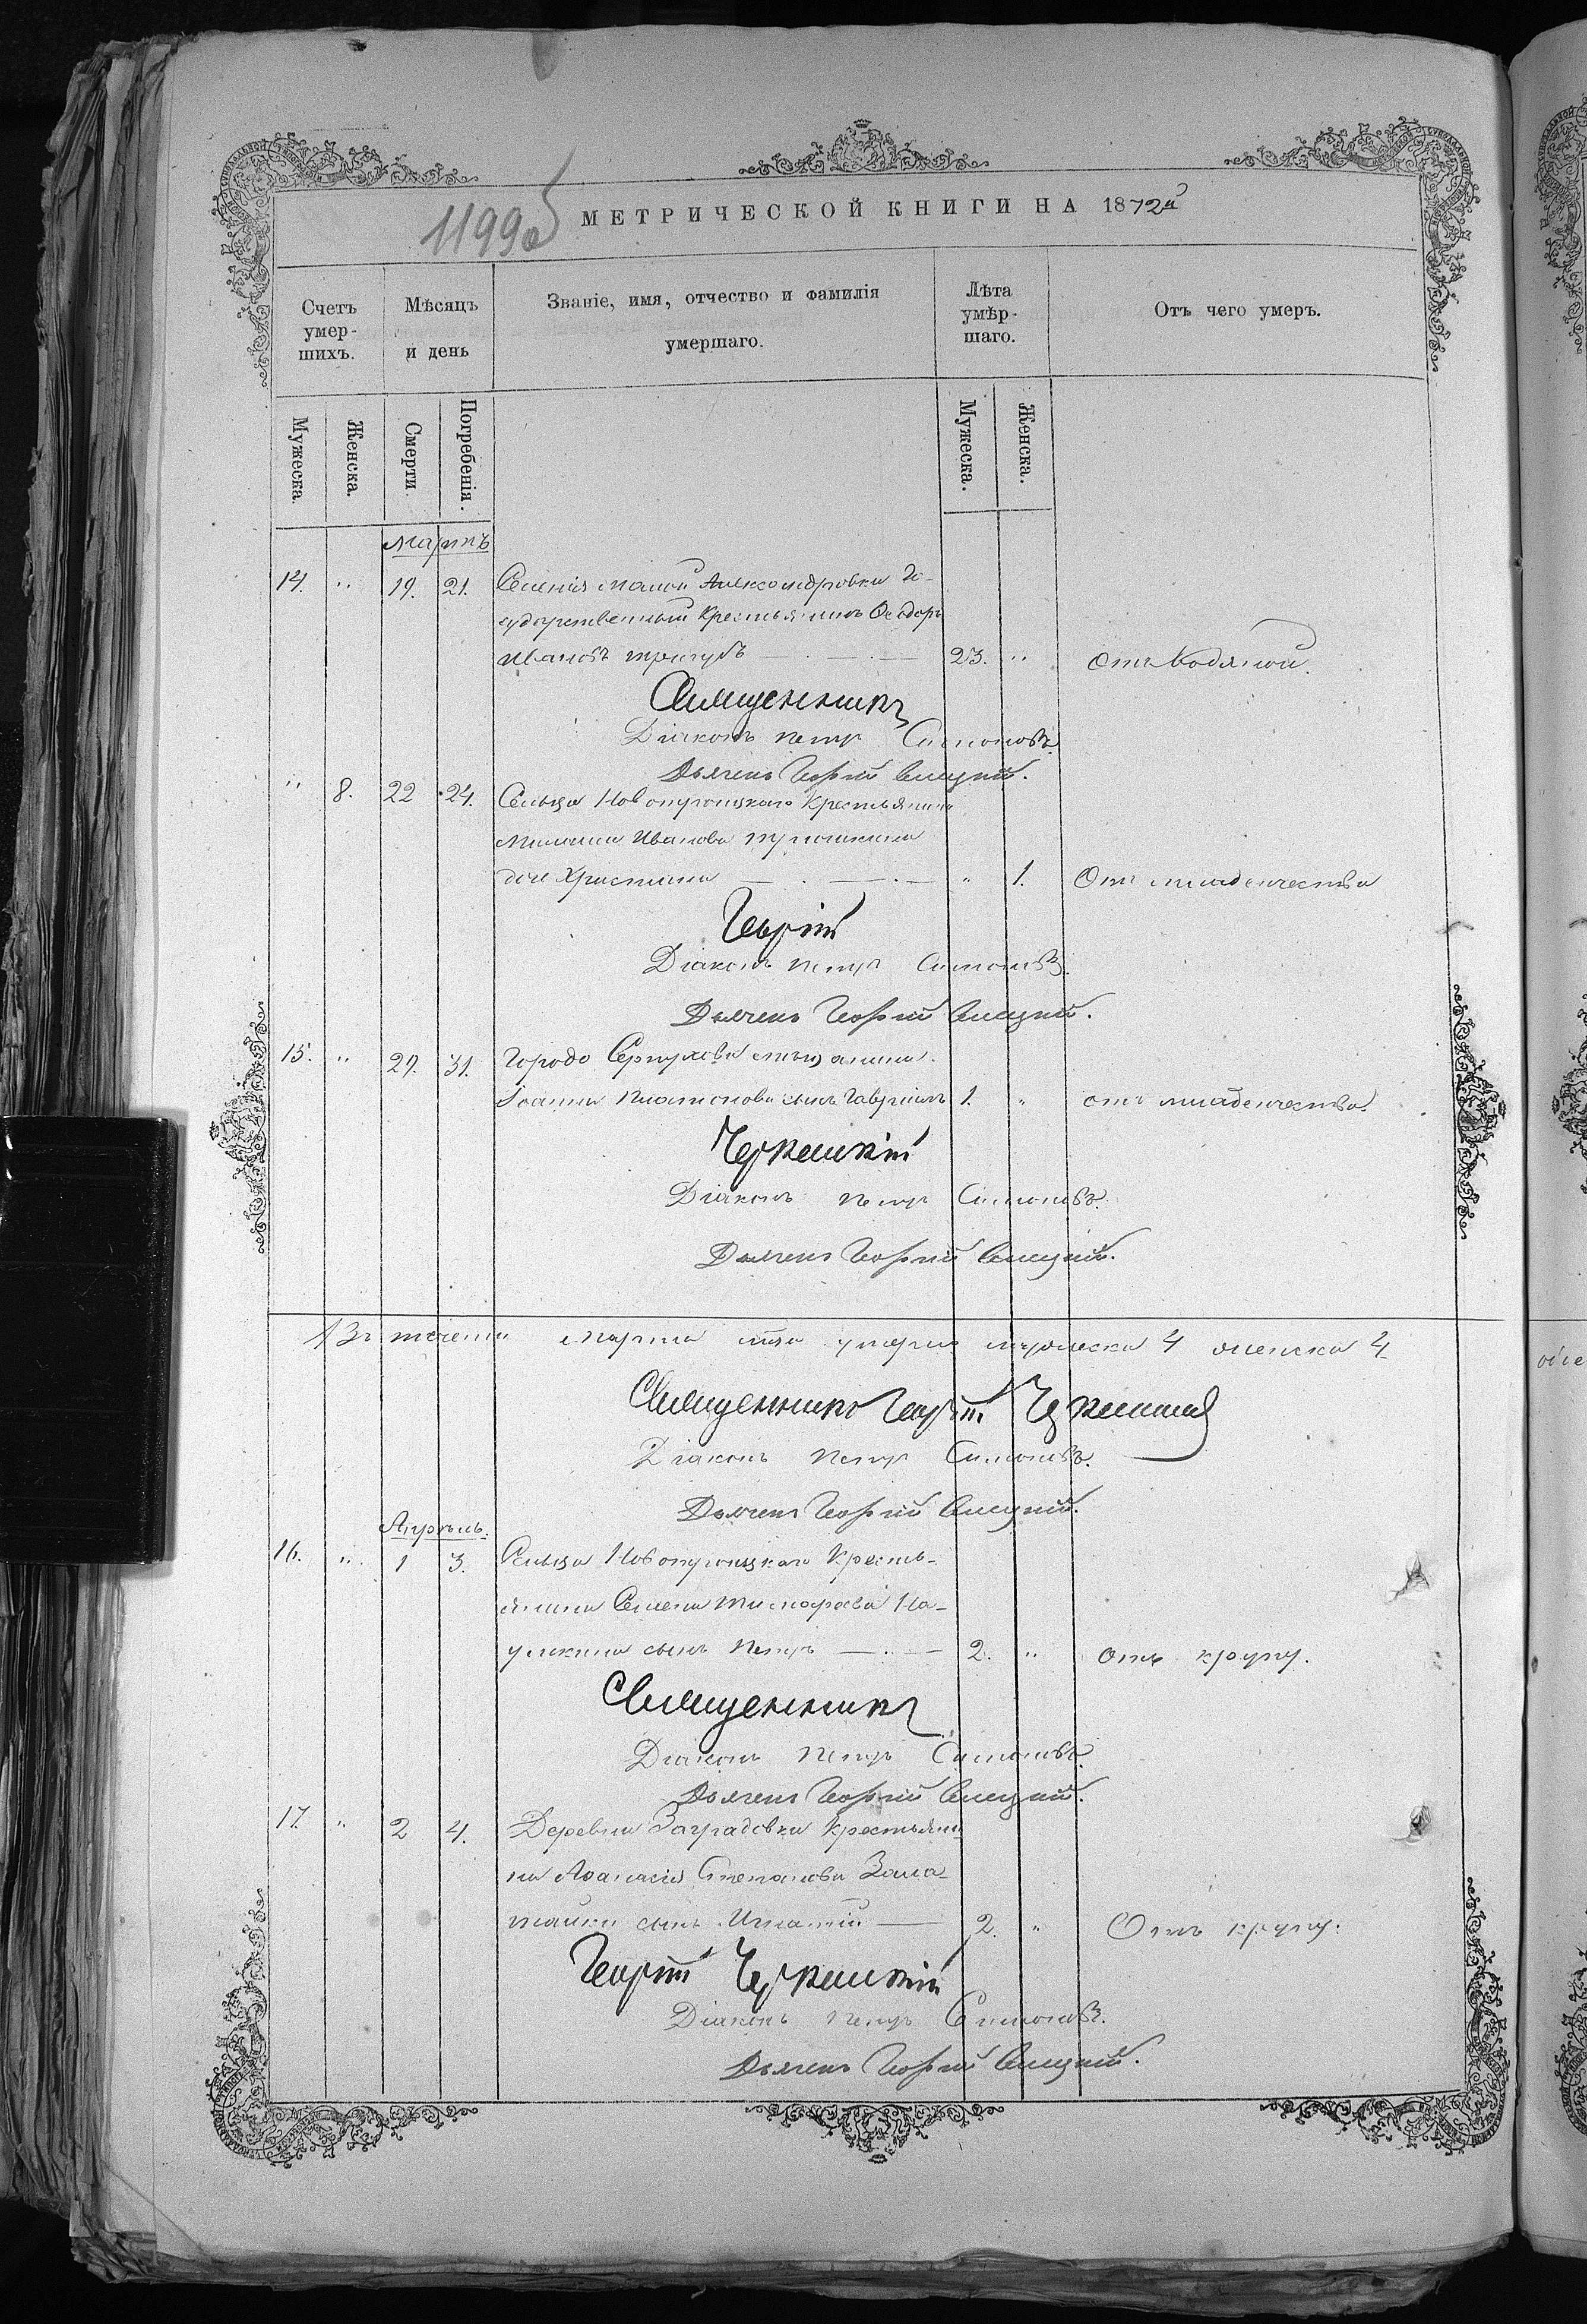 1199 об
МЕТРИЧЕСКОЙ КНИГИ НА 1872й
Счетъ умер-шихъ.
Мѣсяцъ и день
Званіе, имя, отчество и фамилія умершаго.
Лѣта умѣр-шаго.
Отъ чего умеръ.
Мужеска.
Женска.
Смерти.
Погребенія.
Мужеска.
Женска.
Мартъ
14. " 19. 21. Селенія Малой Александровки Го-
сударственный Крестьянинъ Ѳеодоръ
Ивановъ Тригубъ 23. " Отъ Водяной.
Священникъ
Діаконъ Петръ Симоновъ.
Дьячекъ Георгій
" 8. 22 24. Сельца Новотроицкаго Крестьянина
Ивановa
дочь Христина " 1. Отъ младенчества
Георгій
Діаконъ Петръ Симоновъ.
Дьячекъ Георгій
15. " 29. 31. Города Серпухова мѣщанина
Іоанна Платонова сынъ Гавріилъ 1. " отъ младенчества.
Черкешкій
Діаконъ Петръ Симоновъ.
Дьячекъ Георгій
Въ теченіи Марта мца умерло мужеска 4 женска 4
Священникъ Георгій
Діаконъ Петръ Симоновъ.
Дьячекъ Георгій
Апрѣль.
16. " 1 3. Сельца Новотроицкаго Кресть-
янина Семена Тимофеева На-
умкина сынъ Петръ 2. " отъ крупу.
Священникъ
Діаконъ Петръ Симоновъ.
Дьячекъ Георгій
17. " 2 4. Деревни Заградовки Крестьяни
на Аѳанасія Степанова Зама-
тайки сынъ Игнатій 2. " Отъ крупу.
Георгій Черкешкій
Діаконъ Петръ Симоновъ.
Дьячекъ Георгій